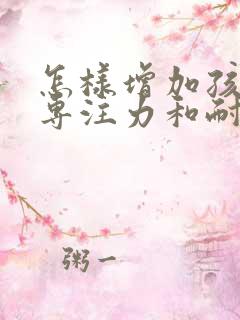 怎樣增加孩
專注力和耐
粥一